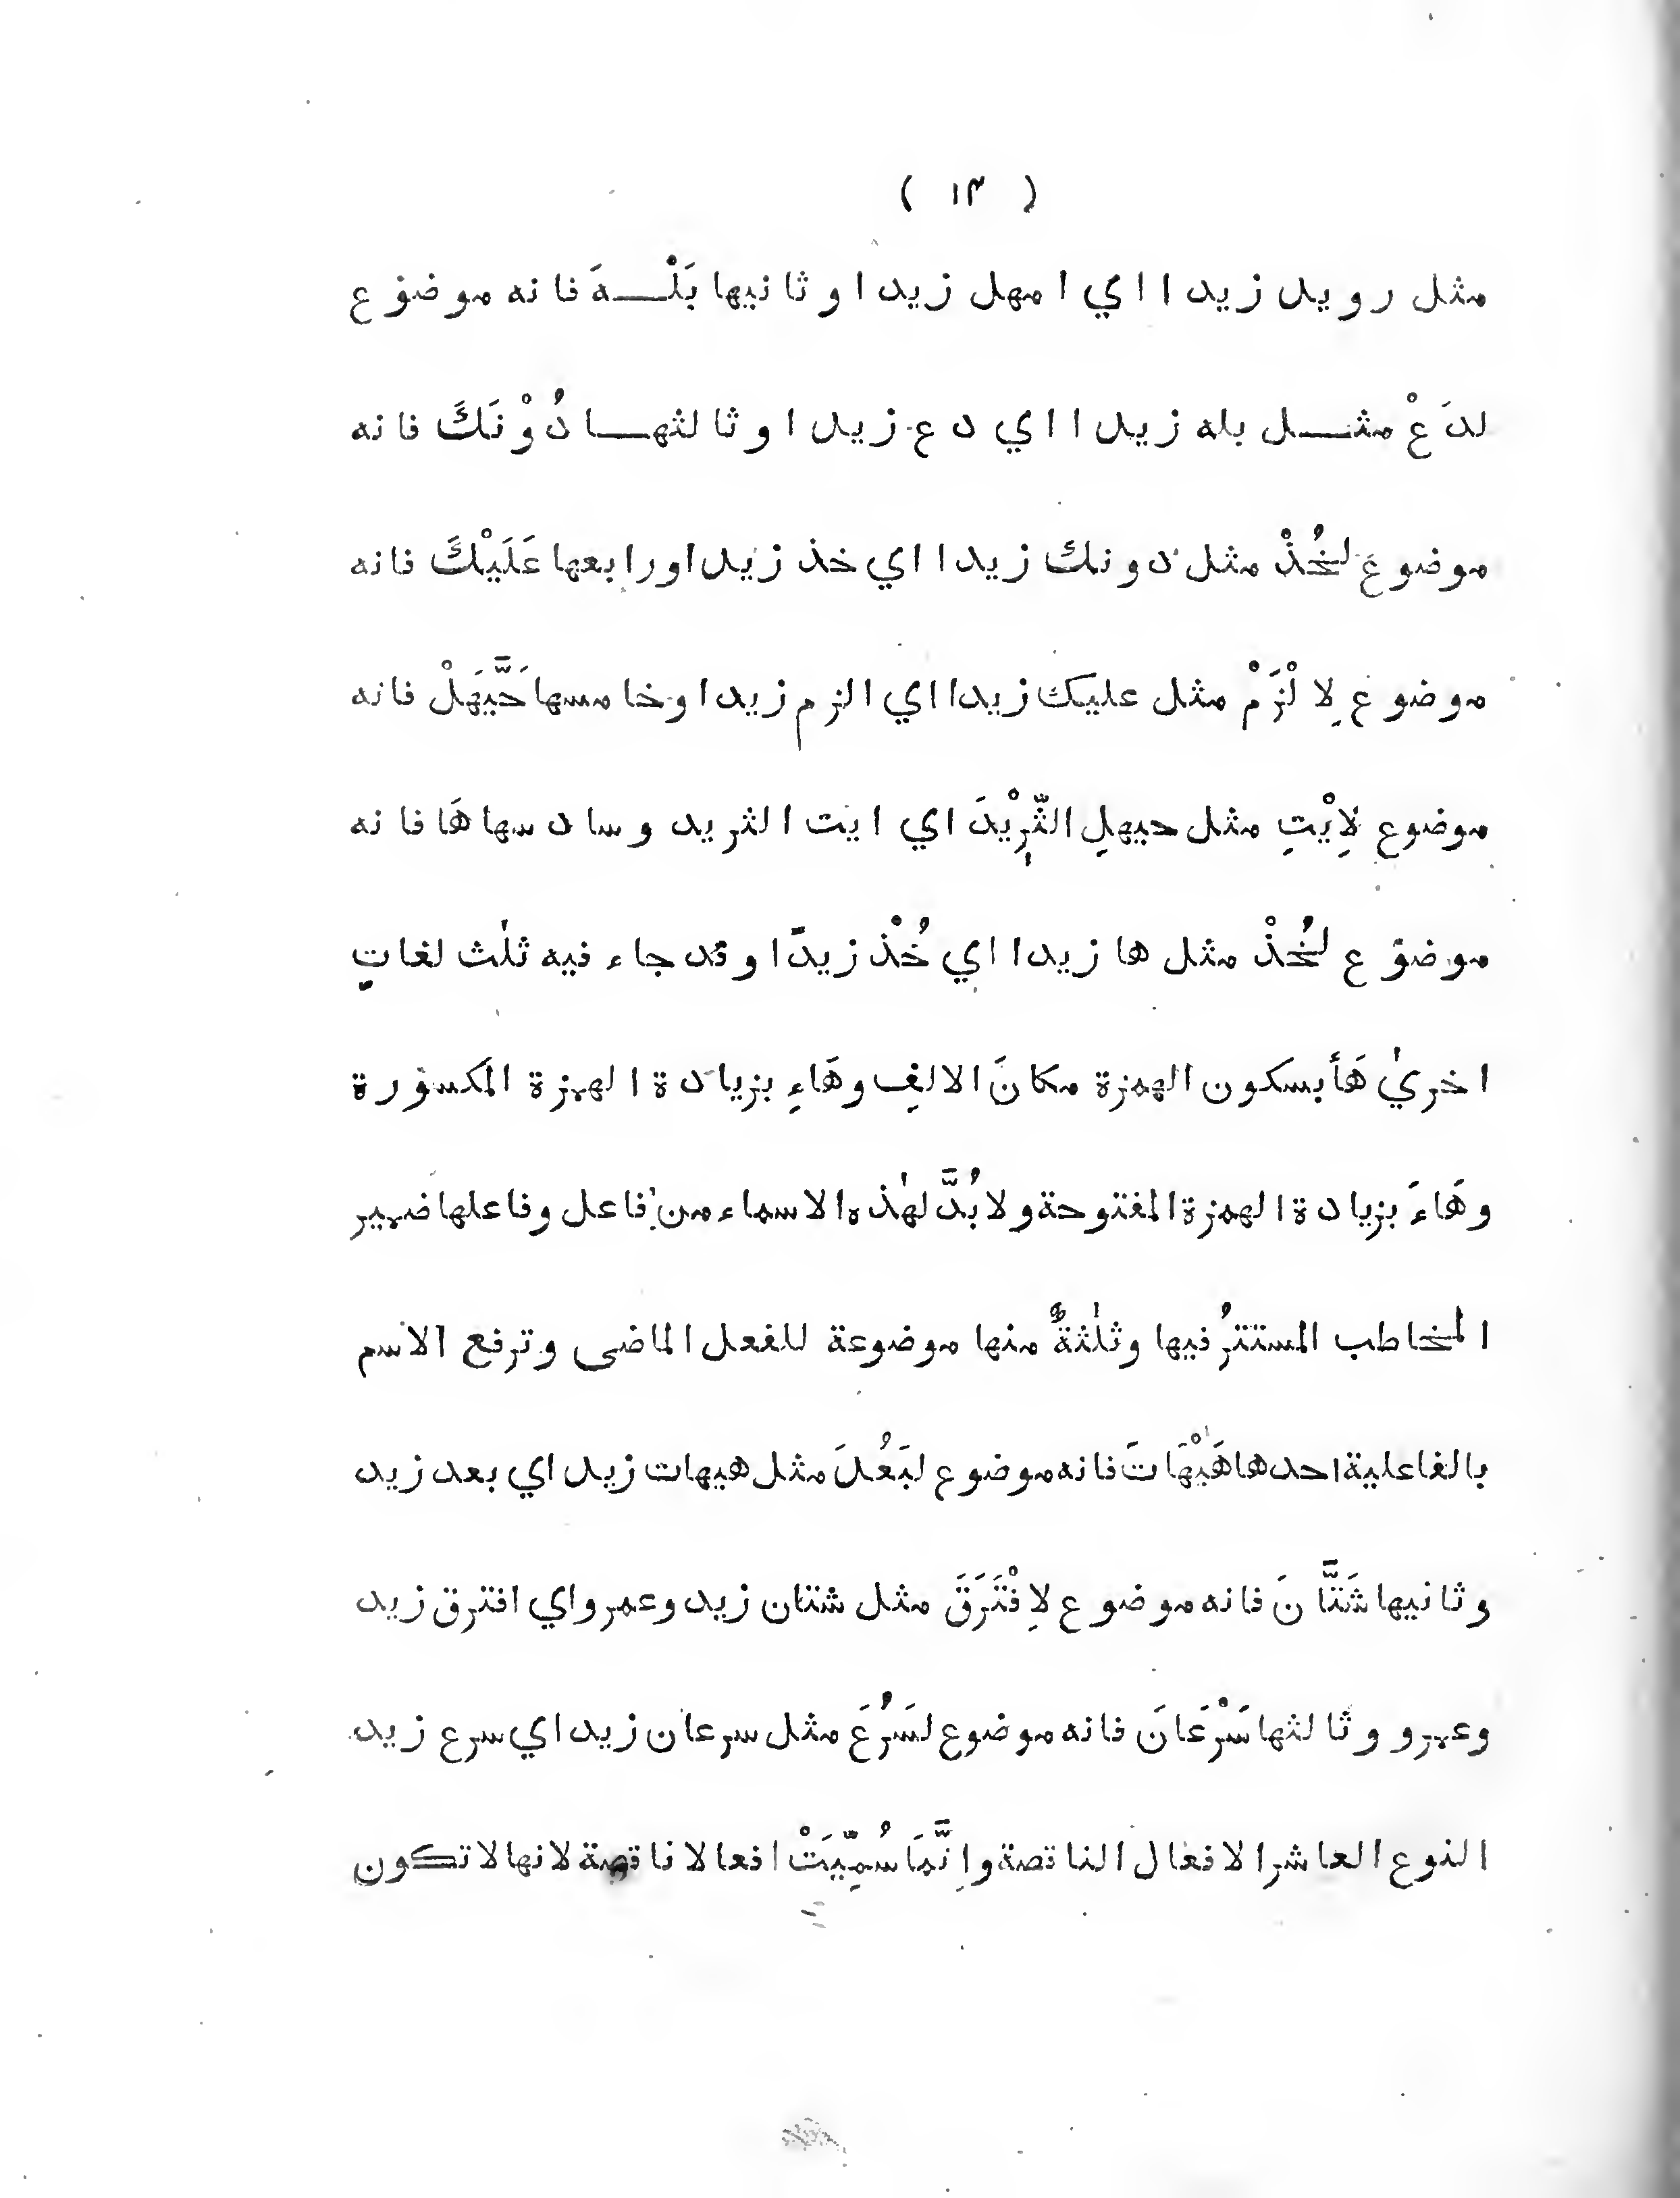 ( ١٣ )
مثل رويد زيدا اي امهل زيدا وثانيها بَلْـــهَ فانه موضوع
لدَعْ مثـــل بله زيدا اي دع زيدا وثالثهـــا دُوْنَكَ فانه
موضوع لخُذْ مثل دونك زيدا اي خذ زيدا ورابعها عَلَيْكَ فانه
موضوع لِالْزَمْ مثل عليك زيدا اي الزم زيدا وخامسها حَيَّهَلْ فانه
موضوع لِايْتِ مثل حيهلِ الثَّرِيْدَ اي ايت الثريد وسادسها هَا فانه
موضوع لخُذْ مثل ها زيدا اي خُذْ زيدًا وقد جاء فيه ثلٰث لغاتٍ
اخريٰ هَأ بسكون الهمزة مكانَ الالفِ وهَاءِ بزيادة الهمزة المكسورة
وهَاءَ بزيادة الهمزة المفتوحة ولا بُدَّ لهٰذه الاسماء من فاعل وفاعلها ضمير
المخاطب المستترُ فيها وثلٰثةٌ منها موضوعة للفعل الماضى وترفع الاسم
بالفاعلية احدها هَيْهَاتَ فانه موضوع لبَعُدَ مثل هيهات زيد اي بعد زيد
وثانيها شَتَّانَ فانه موضوع لِافْتَرَقَ مثل شتان زيد وعمرو اي افترق زيد
وعمرو وثالثها سَرْعَانَ فانه موضوع لسَرُعَ مثل سرعان زيد اي سرع زيد
النوع العاشر الافعال الناقصة وإنَّمَا سُمِّيَتْ افعالا ناقصة لانها لا تكون